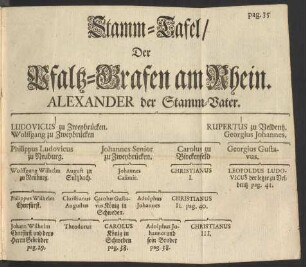 pag. 35
Stamm-Tafel/
Der
Pfaltz-Grafen am Rhein.
ALEXANDER der Stamm-Vater.
LUDOVICUS zu Zweybrücken. RUPERTUS zu Veldentz,
Wolffgang zu Zweybrücken Georgius Johannes,
Philippus Ludovicus Johannes Senior Carolus zu Georgius Gusta-
zu Neuburg. zu Zweybrücken. Birckenfeld vus.
Wolffgang Wilhelm August zu Johannes CHRISTIANUS LEOPOLDUS LUDO-
zu Neuburg. Sultzbach. Casimir. I. VICUS
pag. 41.
Philippus Wilhelm Christianus Carolus Gusta- Adolphus CHRISTIANUS
Churfürst. Augustus vus König in Johannes II. pag. 40.
Schweden.
Johann Wilhelm Theodorus CAROLUS Adolphus Jo- CHRISTIANUS
Churfürst und dero König in hannes und III.
Herrn Gebrüder Schweden sein Bruder
pag. 29. pag. 38. pag. 38.